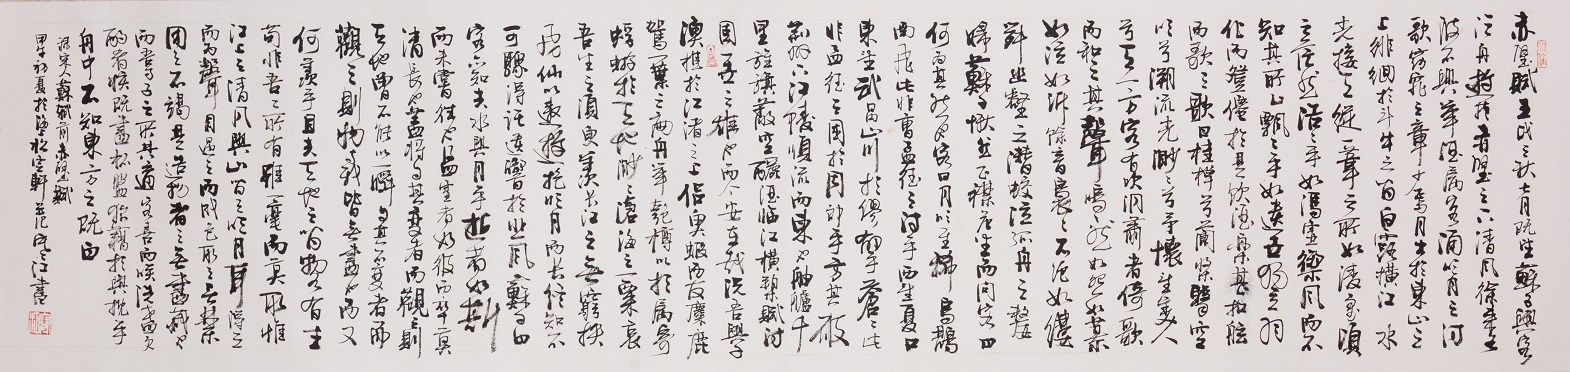 赤壁賦壬戌之秋七月既望蘇子與客
泛舟遊於赤壁之下清風徐來水
波不興舉酒屬客誦明月之詩
歌窈窕之章少焉月出於東山之
上徘徊於斗牛之間白露橫江水
光接天縱一葦之所如凌萬頃
之茫然浩浩乎如馮虛御風而不
知其所止飄飄乎如遺世獨立羽
化而登僊於是飲酒樂甚扣舷
而歌之歌曰桂棹兮蘭槳擊空
明兮溯流光渺渺兮予懷望美人
兮天一方客有吹洞簫者倚歌
而和之其聲嗚嗚然如怨如慕
如泣如訴餘音裊裊不絕如縷
舞幽壑之潛蛟泣孤舟之嫠
婦蘇子愀然正襟危坐而問客曰
何為其然也客曰月明星稀烏鵲
南飛此非曹孟德之詩乎西望夏口
東望武昌山川相繆鬱乎蒼蒼此
非孟德之困於周郎乎方其破
荊州下江陵順流而東也舳艫千
里旌旗蔽空釃酒臨江橫槊賦詩
固一世之雄也而今安在哉況吾與子
漁樵於江渚之上侶魚蝦而友麋鹿
駕一葉之扁舟舉匏樽以相屬寄
蜉蝣於天地渺滄海之一粟哀
吾生之須臾羨長江之無窮挾
飛仙以遨遊抱明月而長終知不
可驟得託遺響於悲風蘇子曰
客亦知夫水與月乎逝者如斯
而未嘗往也盈虛者如彼而卒莫
消長也蓋將自其變者而觀之則
天地曾不能以一瞬自其不變者而
觀之則物與我皆無盡也而又
何羨乎且夫天地之間物各有主
苟非吾之所有雖一毫而莫取惟
江上之清風與山間之明月耳得之
而為聲目遇之而成色取之無禁
用之不竭是造物者之無盡藏也
而吾與子之所共適客喜而笑洗盞更
酌肴核既盡杯盤狼籍相與枕乎
舟中不知東方之既白
錄宋人蘇軾前赤壁賦
甲午初夏於松雲軒江書